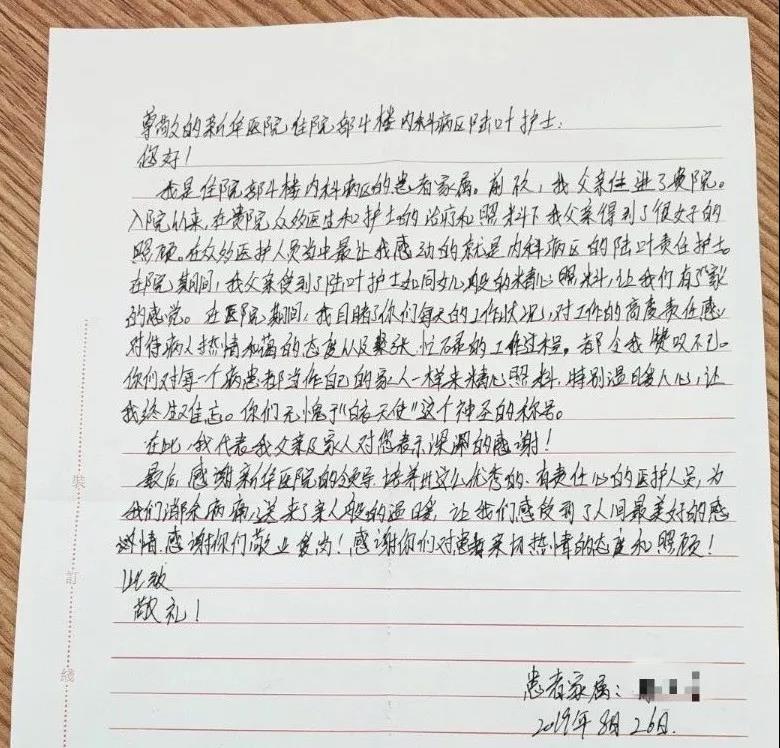 尊敬的新华医院住院部4楼内科病区陆叶护士:
您好!
我是住院部4楼内科病区的患者家属。前段,我父亲住进了贵院。
入院以来,在贵院众多医生和护士的治疗和照料下我父亲得到了很好的
照顾。在众多医护人员当中最让我感动的就是内科病区的陆叶责任护士。
在院期间,我父亲受到了陆叶护士如同女儿般的精心照料,让我们有了家
的感觉。在医院期间,我目睹了你们每天的工作状况,对工作的高度责任感
对待病人热情和蔼的态度以及紧张、忙碌的工作过程,都令我赞叹不已。
你们对每一个病患都当作自己的家人一样来精心照料,特别温暖人心,让
我终生难忘。你们无愧于“白衣天使”这个神圣的称号。
在此,我代表我父亲及家人对您表示深深的感谢!
最后,感谢新华医院的领导培养出这么优秀的、有责任心的医护人员,为
我们消除病痛,送来了亲人般的温暖,让我们感受到了人间最美好的感
情。感谢你们敬业爱岗!感谢你们对患者亲切热情的态度和照顾!
此致
敬礼!
患者家属:
2019年8月26日.
装
订
线